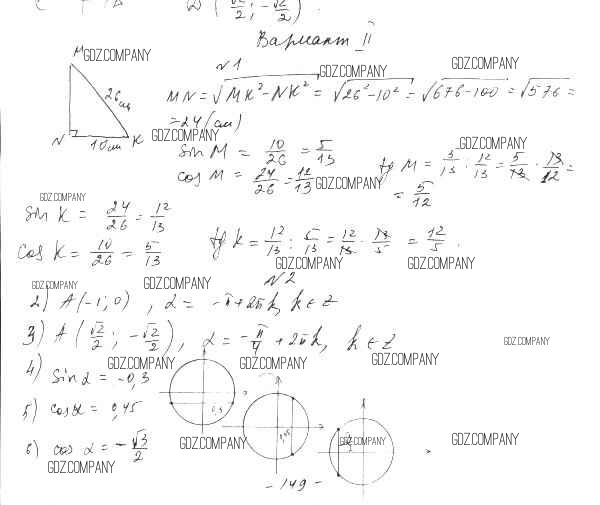 2) (√2/2; -√2/2).
Вариант II
M GDZ.COMPANY
N1 GDZ.COMPANY GDZ.COMPANY
26 см
MN = √MK² - NK² = √26² - 10² = √676 - 100 = √576 =
= 24 (см)
N 10 см K GDZ.COMPANY
sin M = 10/26 = 5/13
GDZ.COMPANY
cos M = 24/26 = 12/13 GDZ.COMPANY
tg M = 5/13 : 12/13 = 5/13 · 13/12 =
= 5/12
GDZ.COMPANY
sin K = 24/26 = 12/13
cos K = 10/26 = 5/13
tg K = 12/13 : 5/13 = 12/13 · 13/5 = 12/5.
GDZ.COMPANY GDZ.COMPANY
GDZ.COMPANY GDZ.COMPANY N2
2) A(-1; 0), α = -π + 2πk, k ∈ Z
3) A(√2/2; -√2/2), α = -π/4 + 2πk, k ∈ Z
GDZ.COMPANY
GDZ.COMPANY GDZ.COMPANY GDZ.COMPANY
4) sin α = -0,3
0,3
5) cos α = 0,45
0,45
6) cos α = -√3/2
GDZ.COMPANY GDZ.COMPANY GDZ.COMPANY
GDZ.COMPANY
-149-